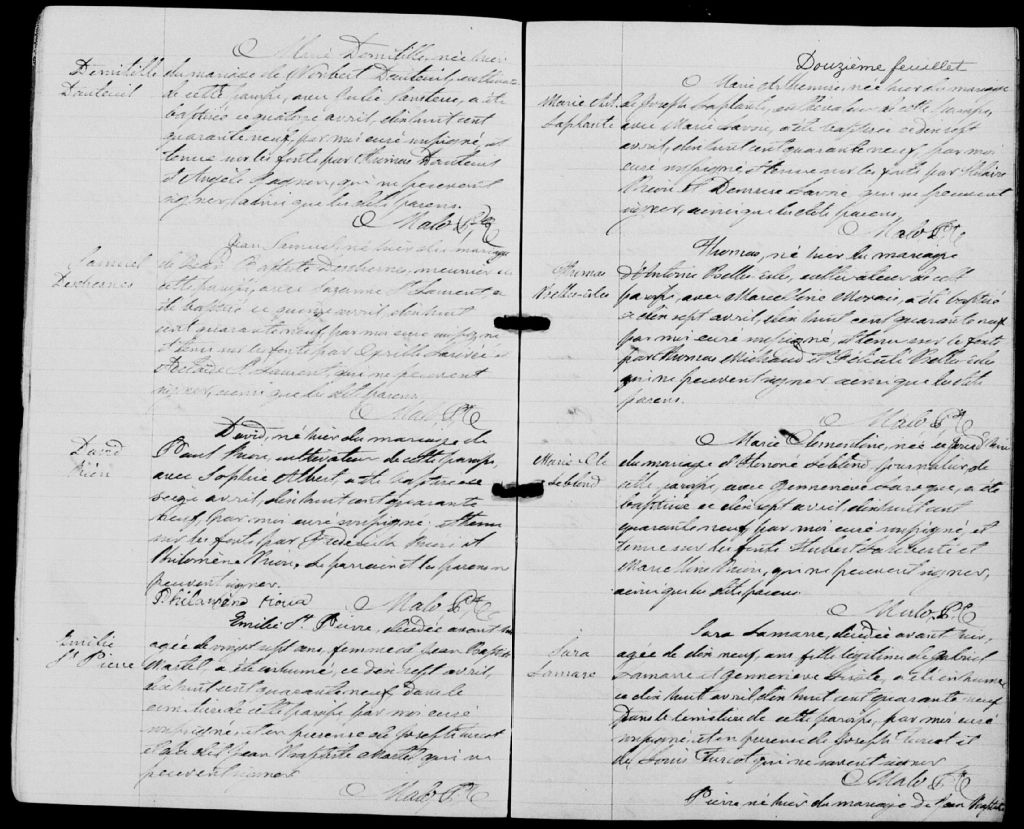 Domitille
Dauteuil
Marie Domitille, née hier
du mariage de Norbert Dauteuil, cultiva-
de cette paroisse, avec Julie, a été
baptisée ce quatorze avril, dix huit cent
quarante neuf, par moi curé soussigné, et
tenue sur les fonts par Dauteuil
et Angèle Gagnon, qui ne peuvent
signer, ainsi que les dits parens.
Malo Ptre
Samuel
Deschesnes
Jean Samuel, né hier du mariage
de Jean Baptiste Deschesnes, meunier de
cette paroisse, avec Suzanne St Laurent, a
été baptisé ce quinze avril, dix huit
cent quarante neuf par moi curé soussigné
et tenu sur les fonts par Cyrille et
Adelaide St Laurent, qui ne peuvent
signer, ainsi que les dits parens.
Malo Ptre
David
Riou
David, né hier du mariage de
Paul Riou, cultivateur de cette paroisse,
avec Sophie Albert, a été baptisé ce
seize avril, dix huit cent quarante
neuf, par moi curé soussigné et tenu
sur les fonts par Frederick Riou et
Philomène Riou, le parrain et les parens ne
peuvent signer.
Malo Ptre
Emilie
St Pierre
Emilie St Pierre, décédée avant hier
agée de vingt sept ans, femme de Jean Baptiste
Martel a été inhumée, ce dix sept avril,
dix huit cent quarante neuf dans le
cimetière de cette paroisse par moi curé
soussigné, et en presence de Joseph Turcot
et de Jean Baptiste Martel qui ne
peuvent signer
Malo Ptre
Douzième feuillet
Marie Art.
Laplante
Marie Arthemise, née hier du mariage
de Joseph Laplante, cultivateur de cette paroisse,
avec Marie Savoie, a été baptisée ce dix sept
avril, dix huit cent quarante neuf, par moi
curé soussigné et tenue sur les fonts par Hilaire
Riou et Savoie qui ne peuvent
signer, ainsi que les dits parens,
Malo Ptre
Thomas
Belles-isles
Thomas, né hier du mariage
d'Antoine Belles isles, cultivateur de cette
paroisse, avec Marcelline Morais, a été baptisé
ce dix sept avril, dix huit cent quarante neuf
par moi curé soussigné, et tenu sur les fonts
par Thomas Michaud et Félicité Belles isles
qui ne peuvent signer ainsi que les dits
parens.
Malo Ptre
Marie Cle
Leblond
Marie Clementine, née ce jour
du mariage d'Honoré Leblond, journalier, de
cette paroisse, avec Genneviève Laroque, a été
baptisée ce dix sept avril dix huit cent
quarante neuf, par moi curé soussigné, et
tenue sur les fonts Hubert et
Marie Riou, qui ne peuvent signer,
ainsi que les dits parens.
Malo, Ptre
Sara
Lamare
Sara Lamarre, décédée avant hier,
agée de dix neuf, ans fille légitime de Gabriel
Lamarre et Genneviève, a été inhumée
ce dix huit avril, dix huit cent quarante neuf
dans le cimetière de cette paroisse, par moi curé
soussigné, et en presence de Joseph Turcot et
de Louis Turcot qui ne savent signer
Malo Ptre
Pierre, né hier du mariage de Jean Baptiste